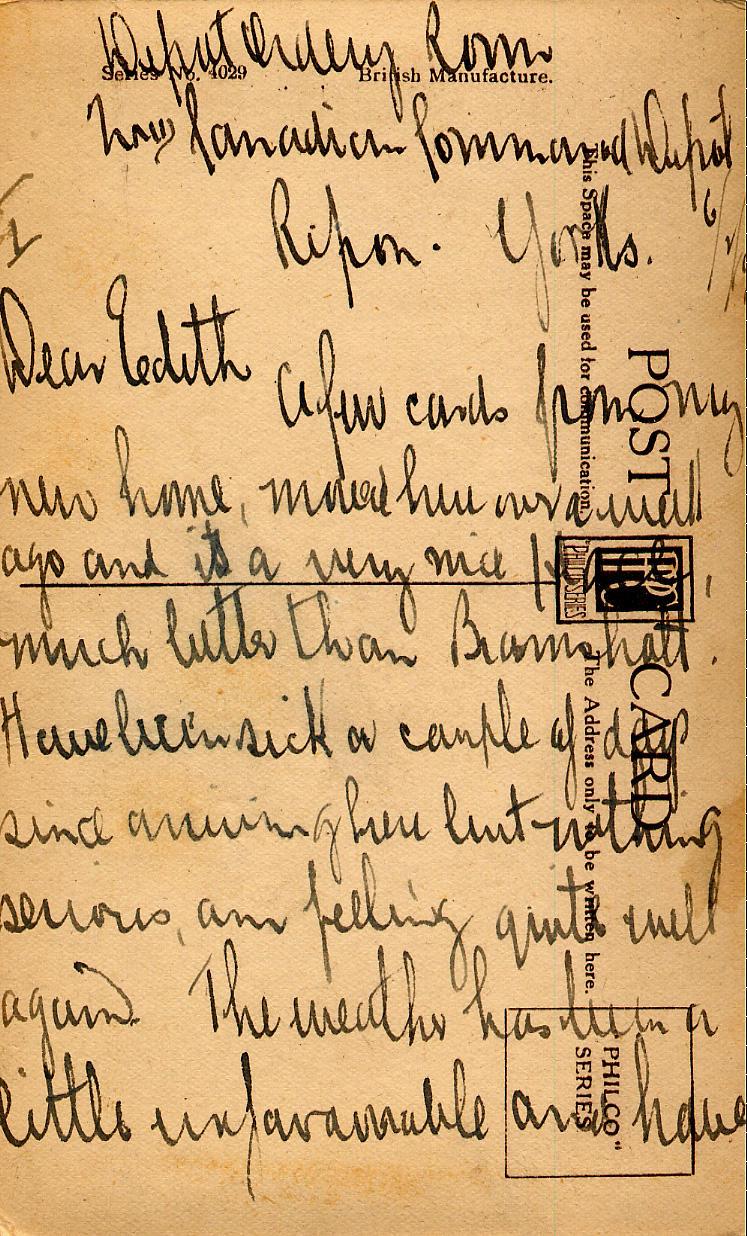 Depot Orderly Room
Series No. 4029 British Manufacture.
Canadian Command Depot
Ripon. Yorks.
1
Dear Edith
A few cards from my
new home, moved here over a week
ago and it's a very nice
much better than Bramshott.
Have been sick a couple of days
since arriving here but nothing
serious, am feeling quite well
again. The weather has been a
little unfavourable and have
POST CARD
This Space may be used for communication.
The Address only to be written here.
PHILCO SERIES
"PHILCO"
SERIES